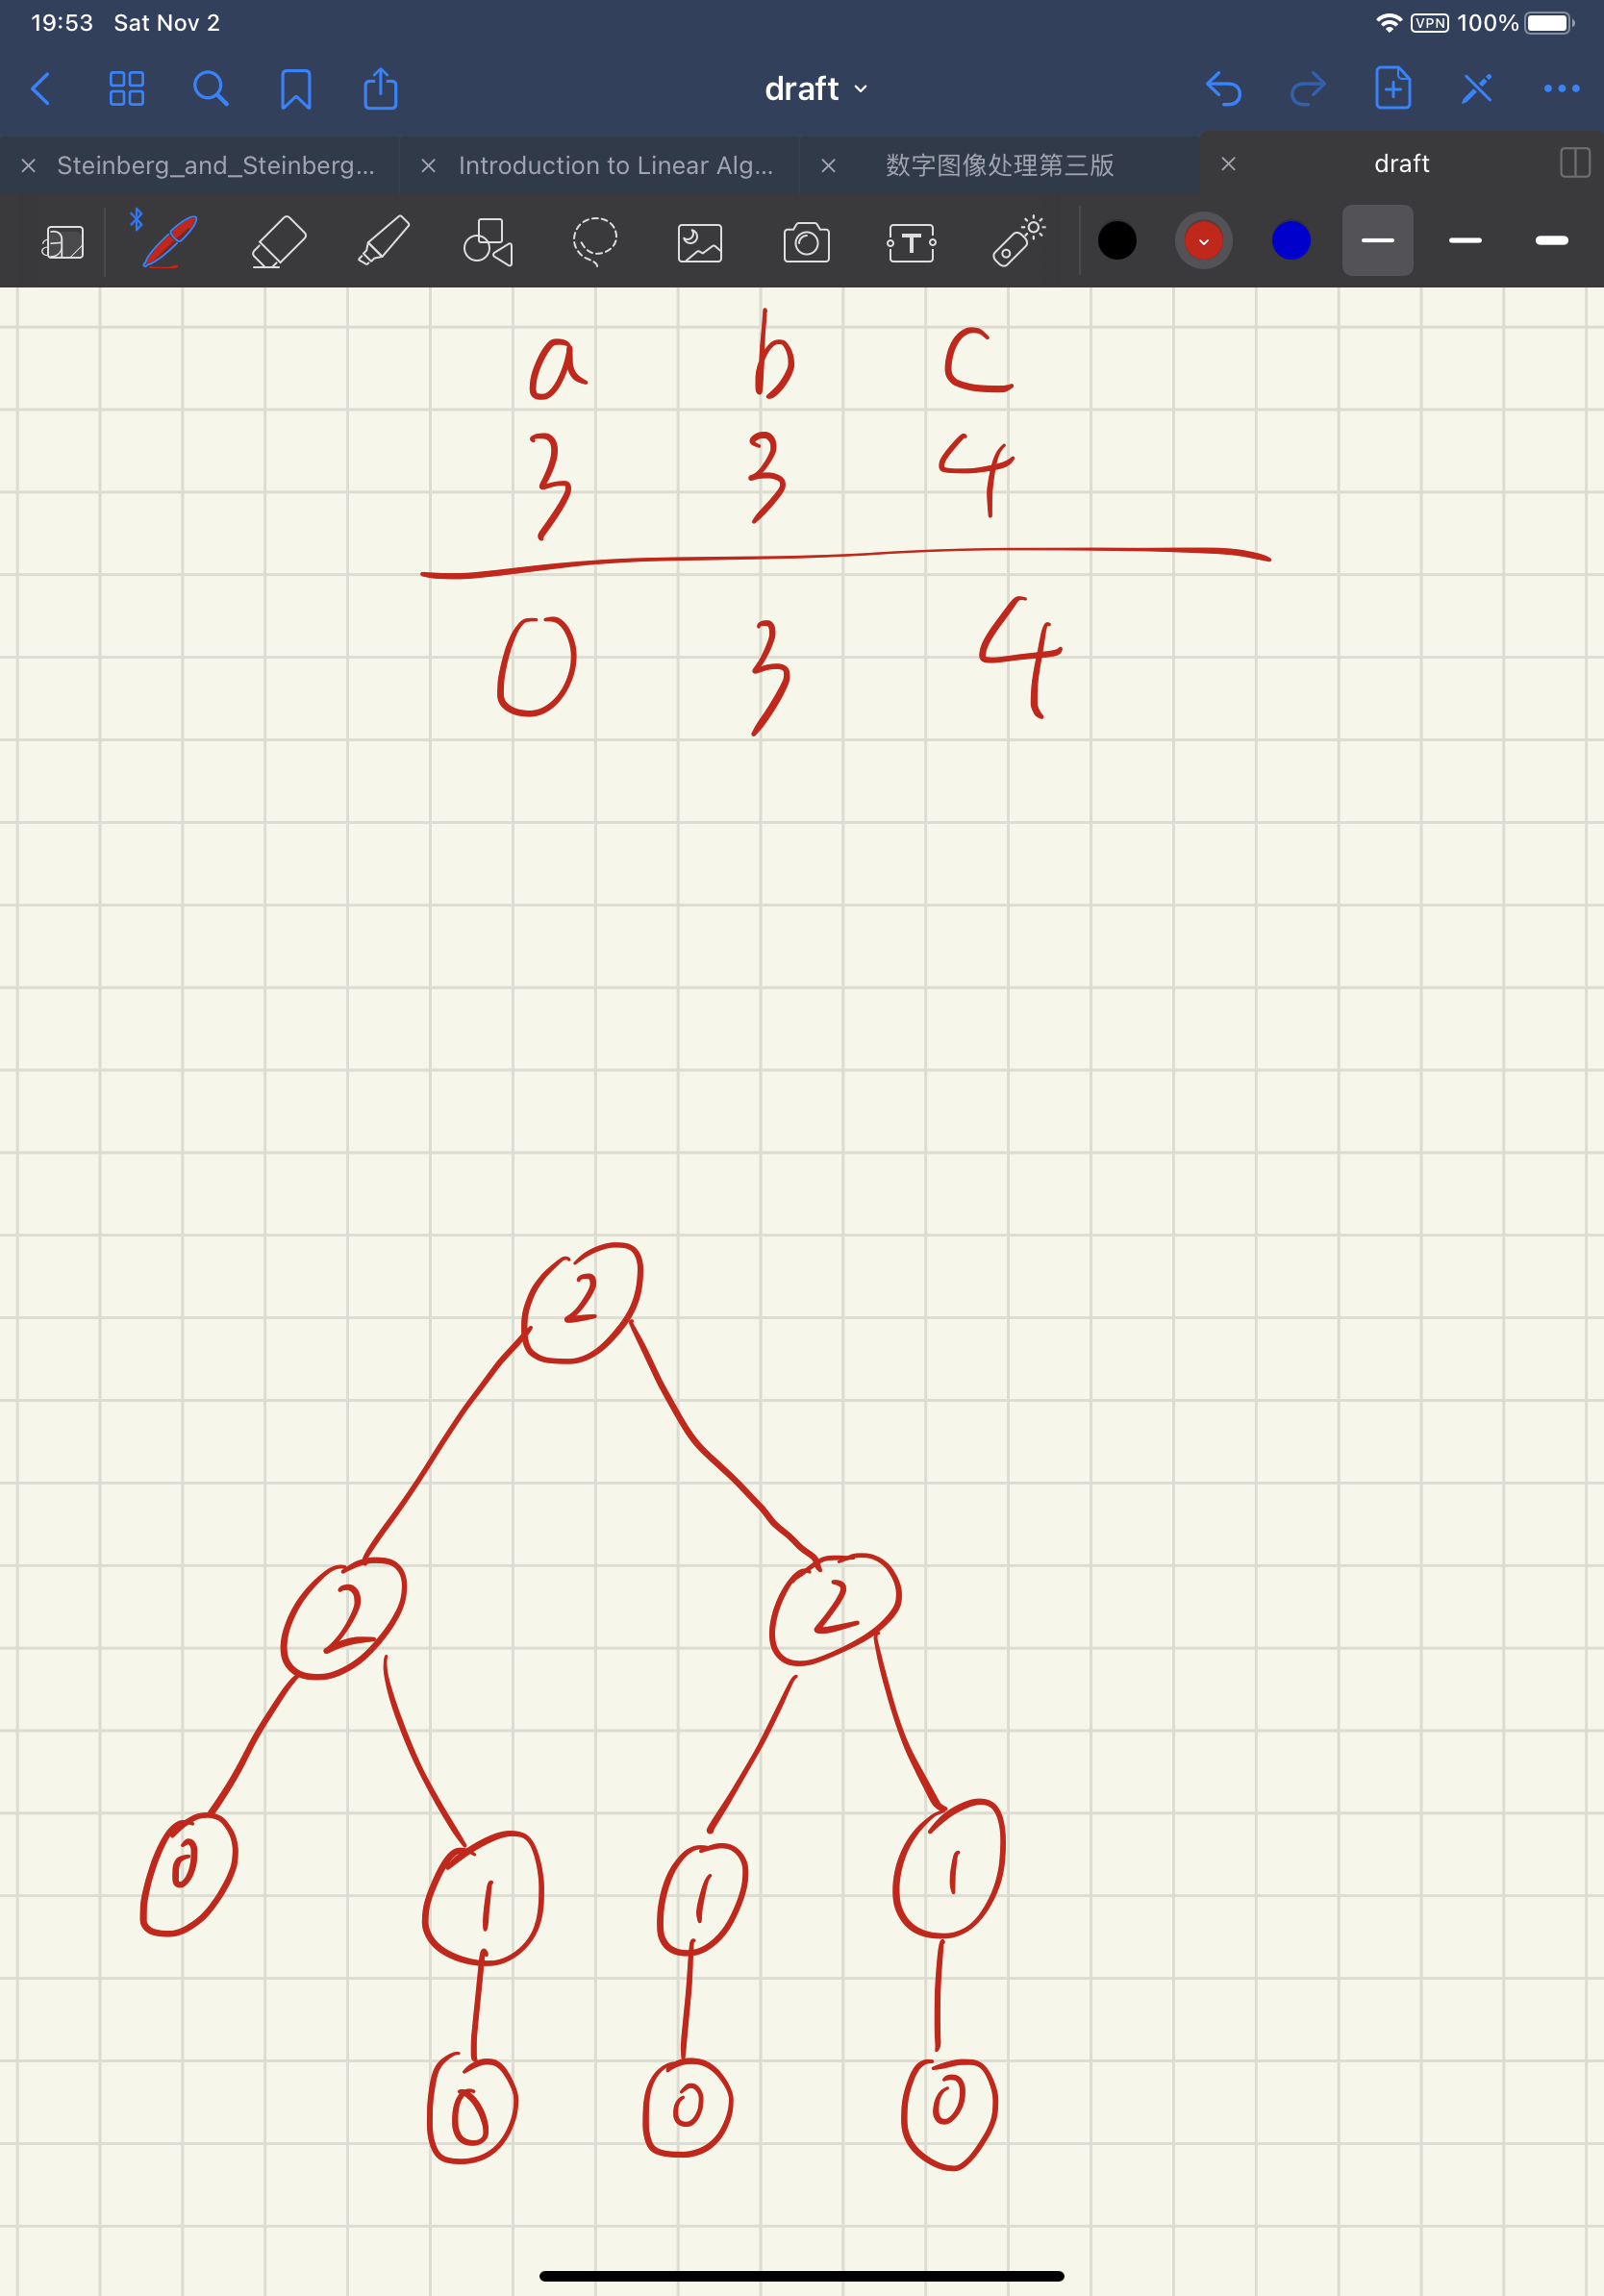 19:53 Sat Nov 2 VPN 100%
draft
Steinberg_and_Steinberg... Introduction to Linear Alg... 数字图像处理第三版 draft
T
a b c
3 3 4
0 3 4
2
2 2
0 1 1 1
0 0 0